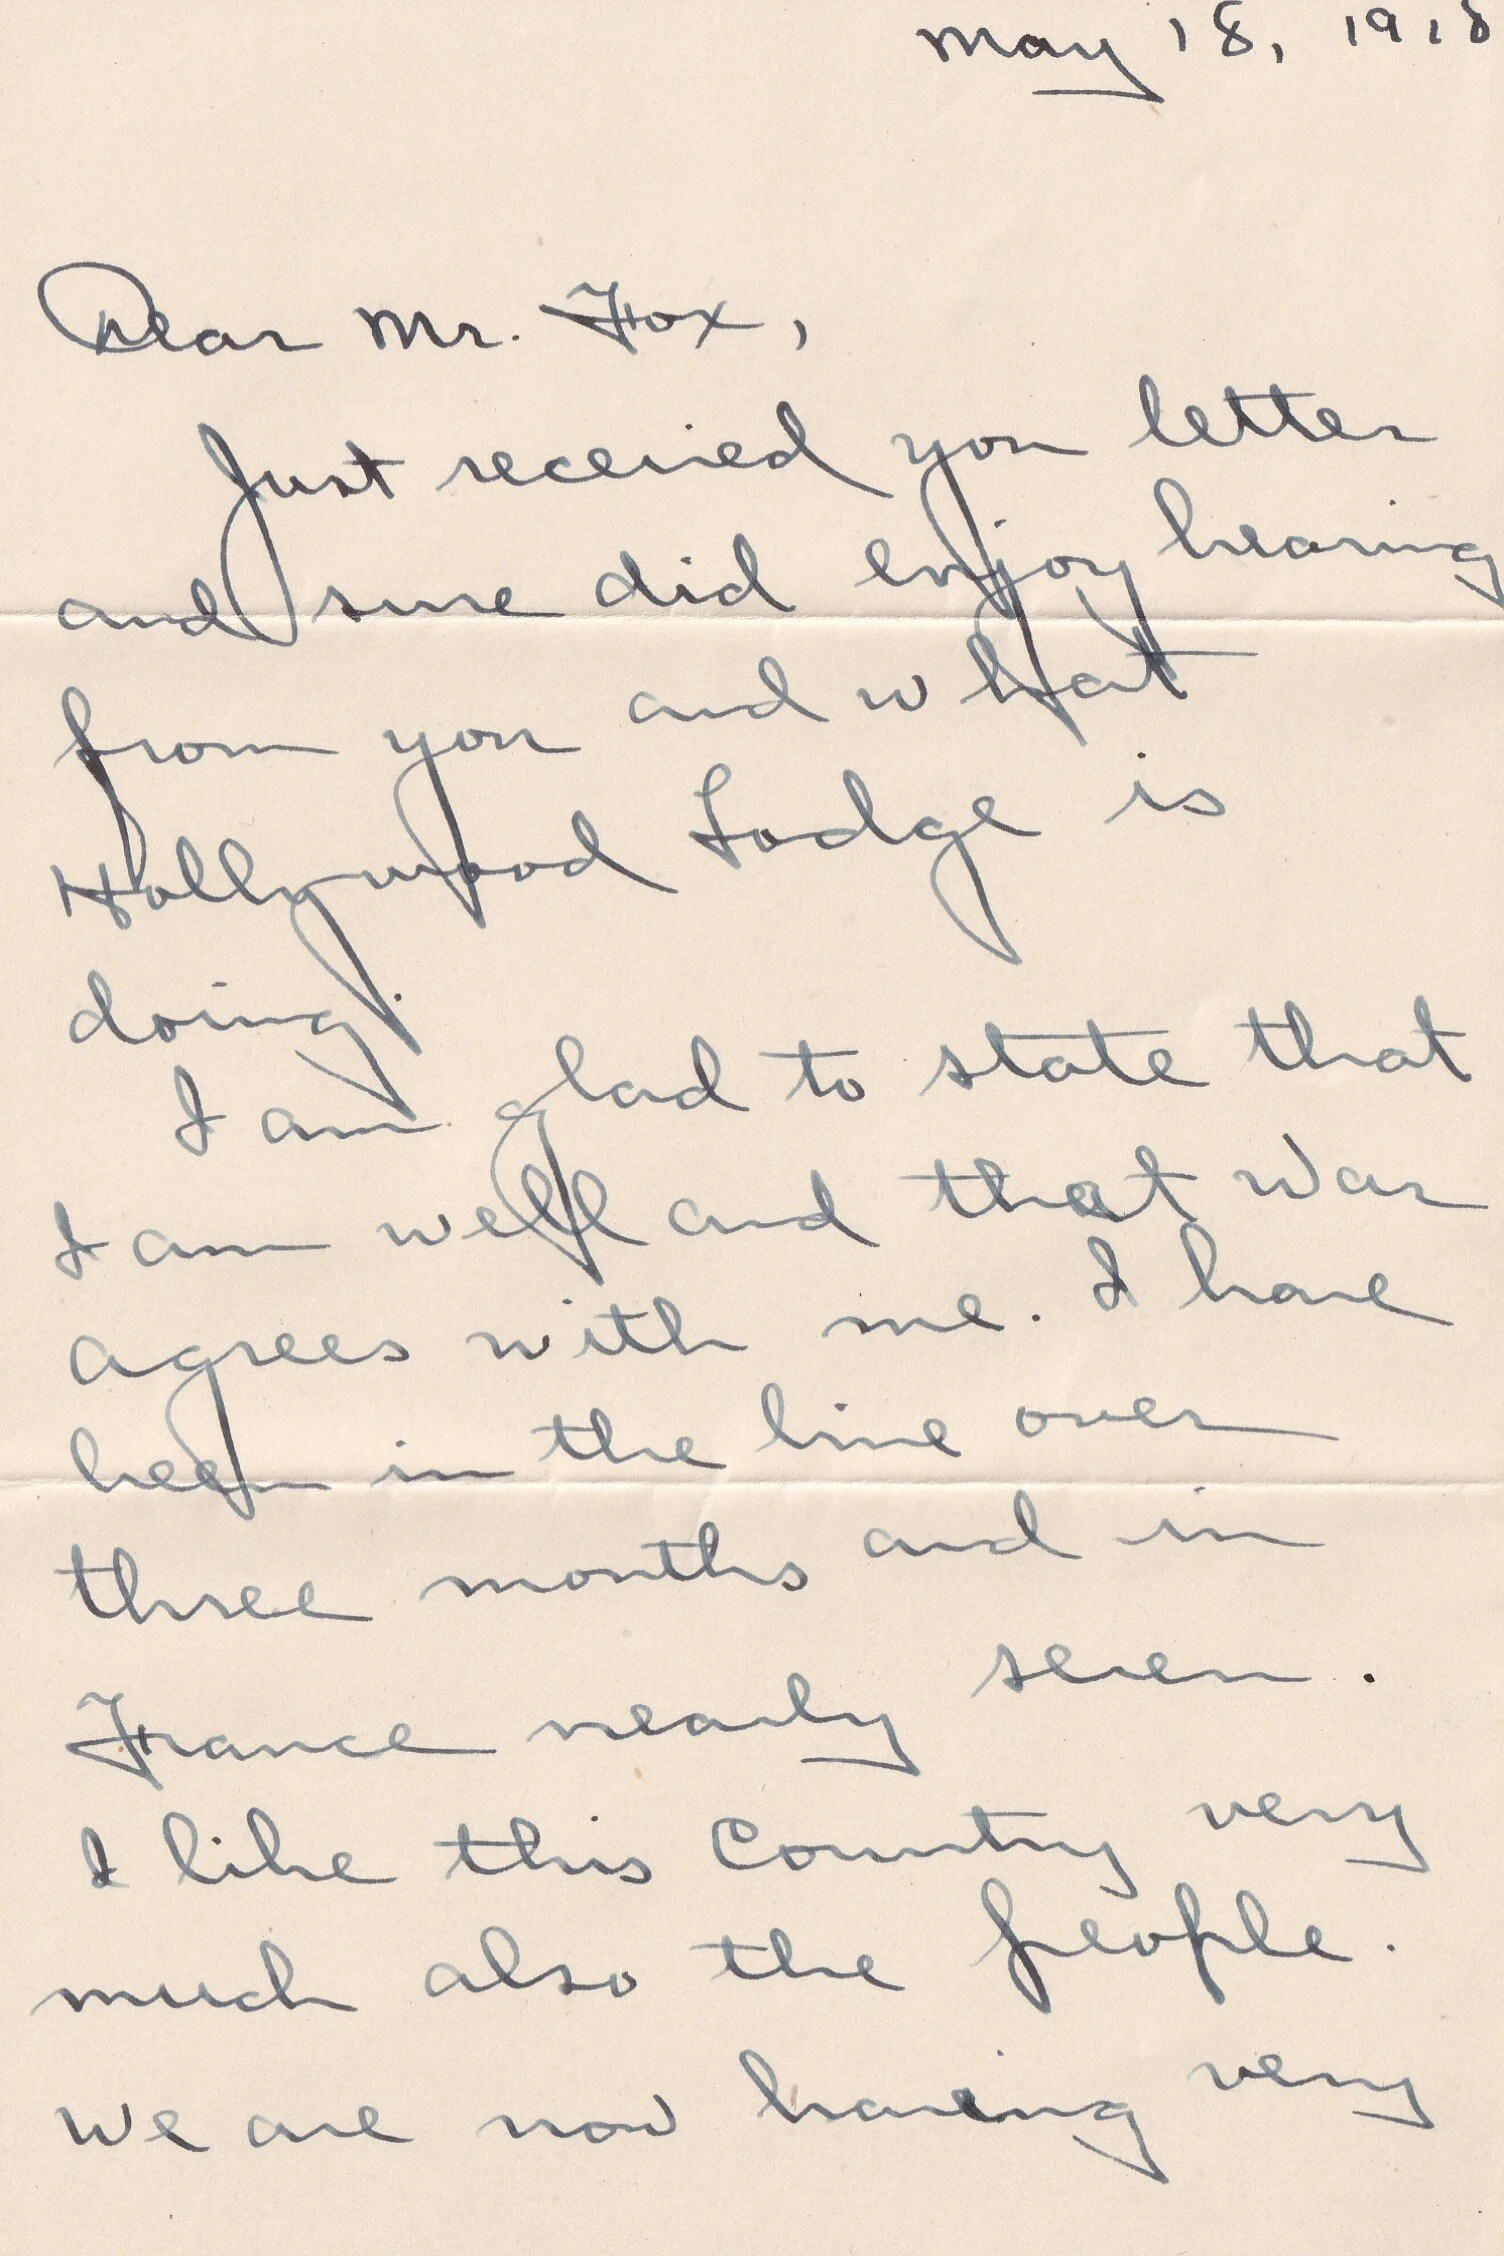 May 18, 1918
Dear Mr. Fox,
Just received you letter
and sure did enjoy hearing
from you and what
Hollywood Lodge is
doing.
I am glad to state that
I am well and that War
agrees with me. I have
been in the line over
three months and in
France nearly seven.
I like this Country very
much also the people.
We are now having very